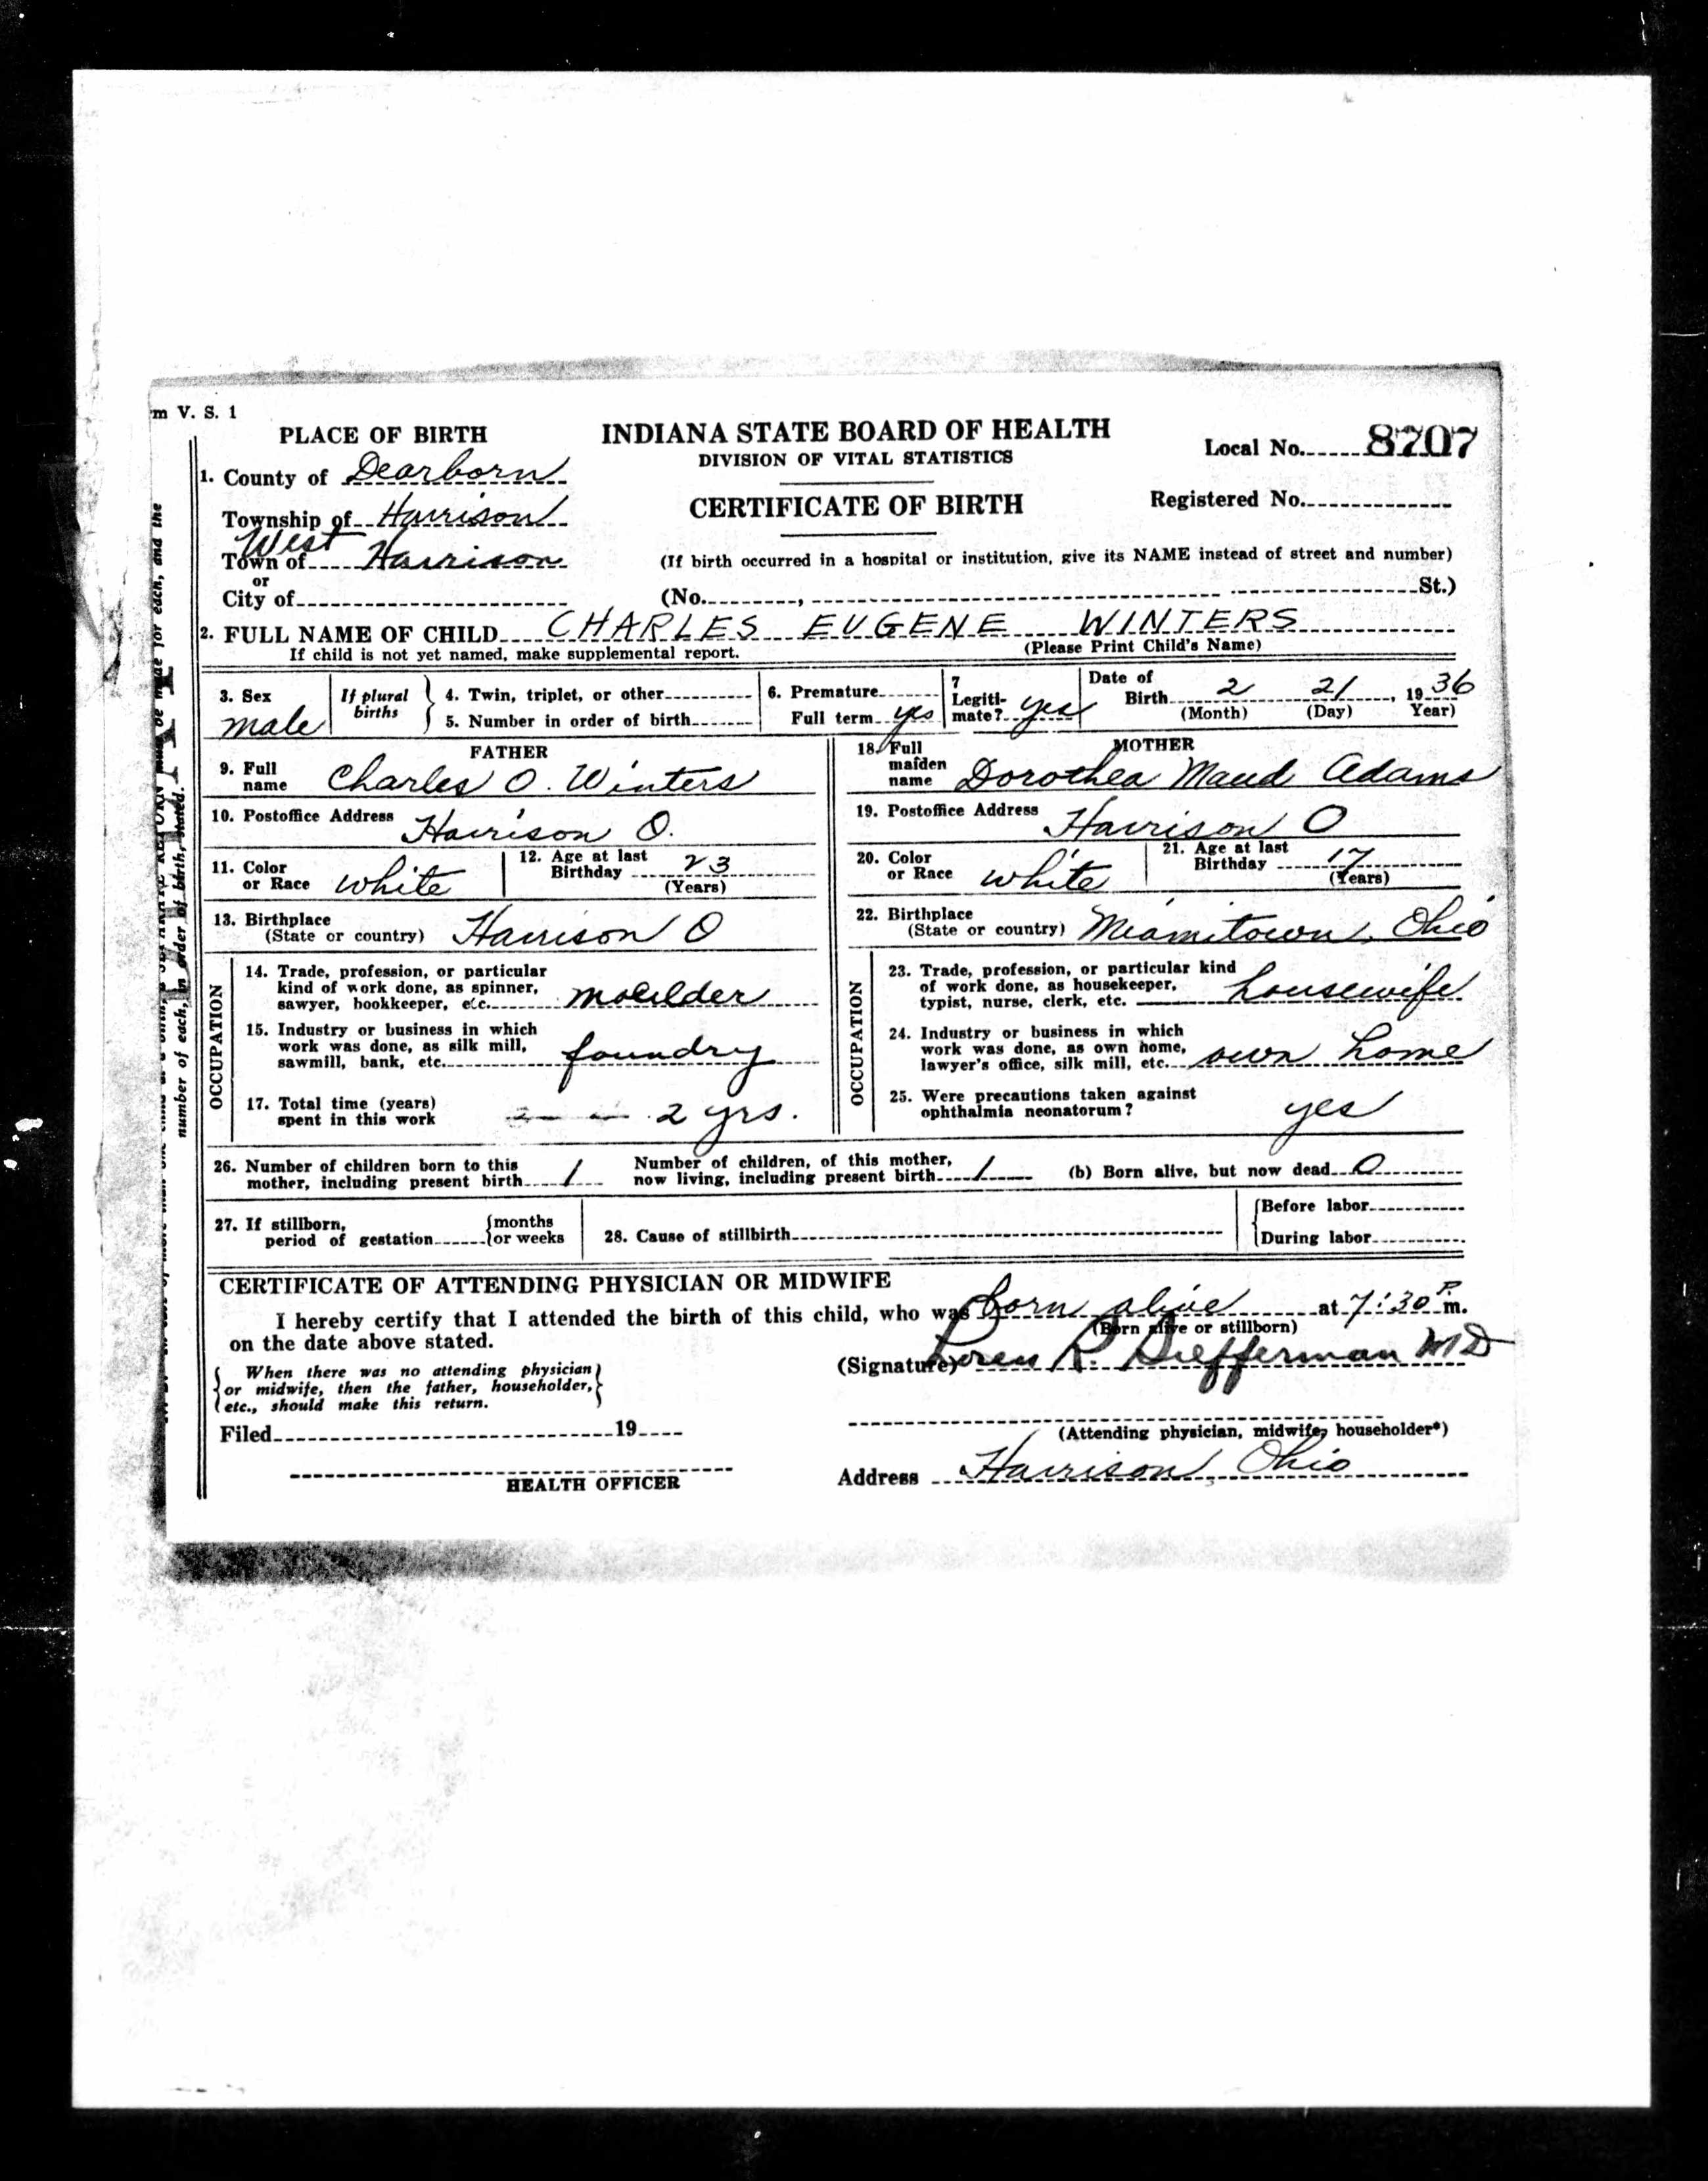 m V. S. 1
PLACE OF BIRTH
INDIANA STATE BOARD OF HEALTH
DIVISION OF VITAL STATISTICS
CERTIFICATE OF BIRTH
Local No. 8707
Registered No.
1. County of Dearborn
Township of Harrison
West
Town of Harrison
or
City of
(If birth occurred in a hospital or institution, give its NAME instead of street and number)
(No. , St.)
2. FULL NAME OF CHILD CHARLES EUGENE WINTERS
If child is not yet named, make supplemental report. (Please Print Child's Name)
3. Sex male
If plural births
4. Twin, triplet, or other
5. Number in order of birth
6. Premature
Full term yes
7 Legiti-
mate? yes
Date of
Birth 2 21, 1936
(Month) (Day) Year)
FATHER
9. Full
name Charles O. Winters
10. Postoffice Address Harrison O.
11. Color
or Race white
12. Age at last
Birthday 23
(Years)
13. Birthplace
(State or country) Harrison O
OCCUPATION
14. Trade, profession, or particular
kind of work done, as spinner,
sawyer, bookkeeper, etc. moulder
15. Industry or business in which
work was done, as silk mill,
sawmill, bank, etc. foundry
17. Total time (years)
spent in this work 2 yrs.
MOTHER
18. Full
maiden
name Dorothea Maud Adams
19. Postoffice Address Harrison O
20. Color
or Race white
21. Age at last
Birthday 17
(Years)
22. Birthplace
(State or country) Miamitown, Ohio
OCCUPATION
23. Trade, profession, or particular kind
of work done, as housekeeper,
typist, nurse, clerk, etc. housewife
24. Industry or business in which
work was done, as own home,
lawyer's office, silk mill, etc. own home
25. Were precautions taken against
ophthalmia neonatorum? yes
26. Number of children born to this
mother, including present birth 1
Number of children, of this mother,
now living, including present birth 1
(b) Born alive, but now dead 0
27. If stillborn,
period of gestation {months
{or weeks
28. Cause of stillbirth
{Before labor
{During labor
CERTIFICATE OF ATTENDING PHYSICIAN OR MIDWIFE
I hereby certify that I attended the birth of this child, who was born alive at 7:30 P. m.
(Born alive or stillborn)
on the date above stated.
{When there was no attending physician}
or midwife, then the father, householder,
etc., should make this return.
(Signature) Loren R. MD
Filed 19
(Attending physician, midwife, householder*)
HEALTH OFFICER
Address Harrison, Ohio
number of each, in order of birth, stated.
must be made for each, and the